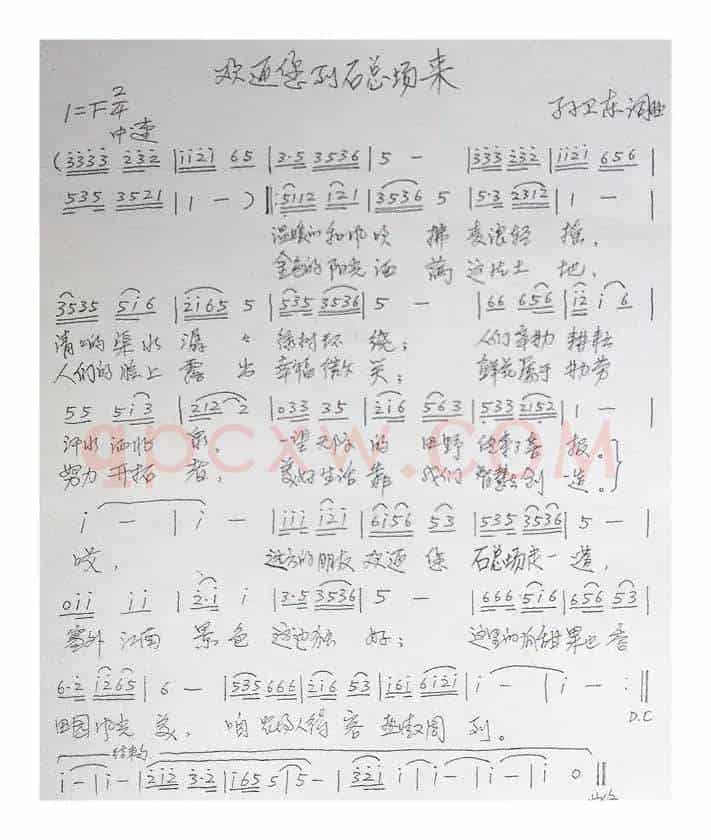 欢迎您到石总场来
1=F 2/4
中速
孙卫东词曲
(3333 232 | 1121 65 | 3·5 3536 | 5 - | 333 232 | 1121 656 |
535 3521 | 1 - ) ‖: 5112 121 | 3536 5 | 5·3 2312 | 1 - |
温暖的和风吹 拂 麦浪轻 摇，
金色的阳光洒 满 这片土 地，
3535 516 | 2165 5 | 535 3536 | 5 - | 66 656 | 12 1 6 |
清清的渠水 潺 绿树环 绕； 人们辛勤 耕耘
人们的脸上 露出 幸福微 笑； 鲜花属于 勤劳
55 513 | 212 2 | 033 35 | 216 563 | 533 2152 | 1 - |
汗水洒 一望无际 的 田野 报。
努力开拓 者， 美好生活 靠 我们 智慧创 造。
1 - | 1 - | 111 121 | 6156 53 | 535 3536 | 5 - |
哎， 远方的朋友 欢迎 您 石总场走一 道，
011 11 | 2·1 1 | 3·5 3536 | 5 - | 666 516 | 656 53 |
塞外 江南 景色 这边独 好； 这里的瓜甜果也香
6·2 1265 | 6 - | 535 666 | 216 53 | 161 6121 | 1 - | 1 - :‖
D.C
田园风光 美， 咱 人待客 热 周 到。
结束句
1 - | 1 - | 212 3·2 | 165 5 | 5 - | 321 1 | 1 - | 1 - | 1 0 ‖
gpcxw.com